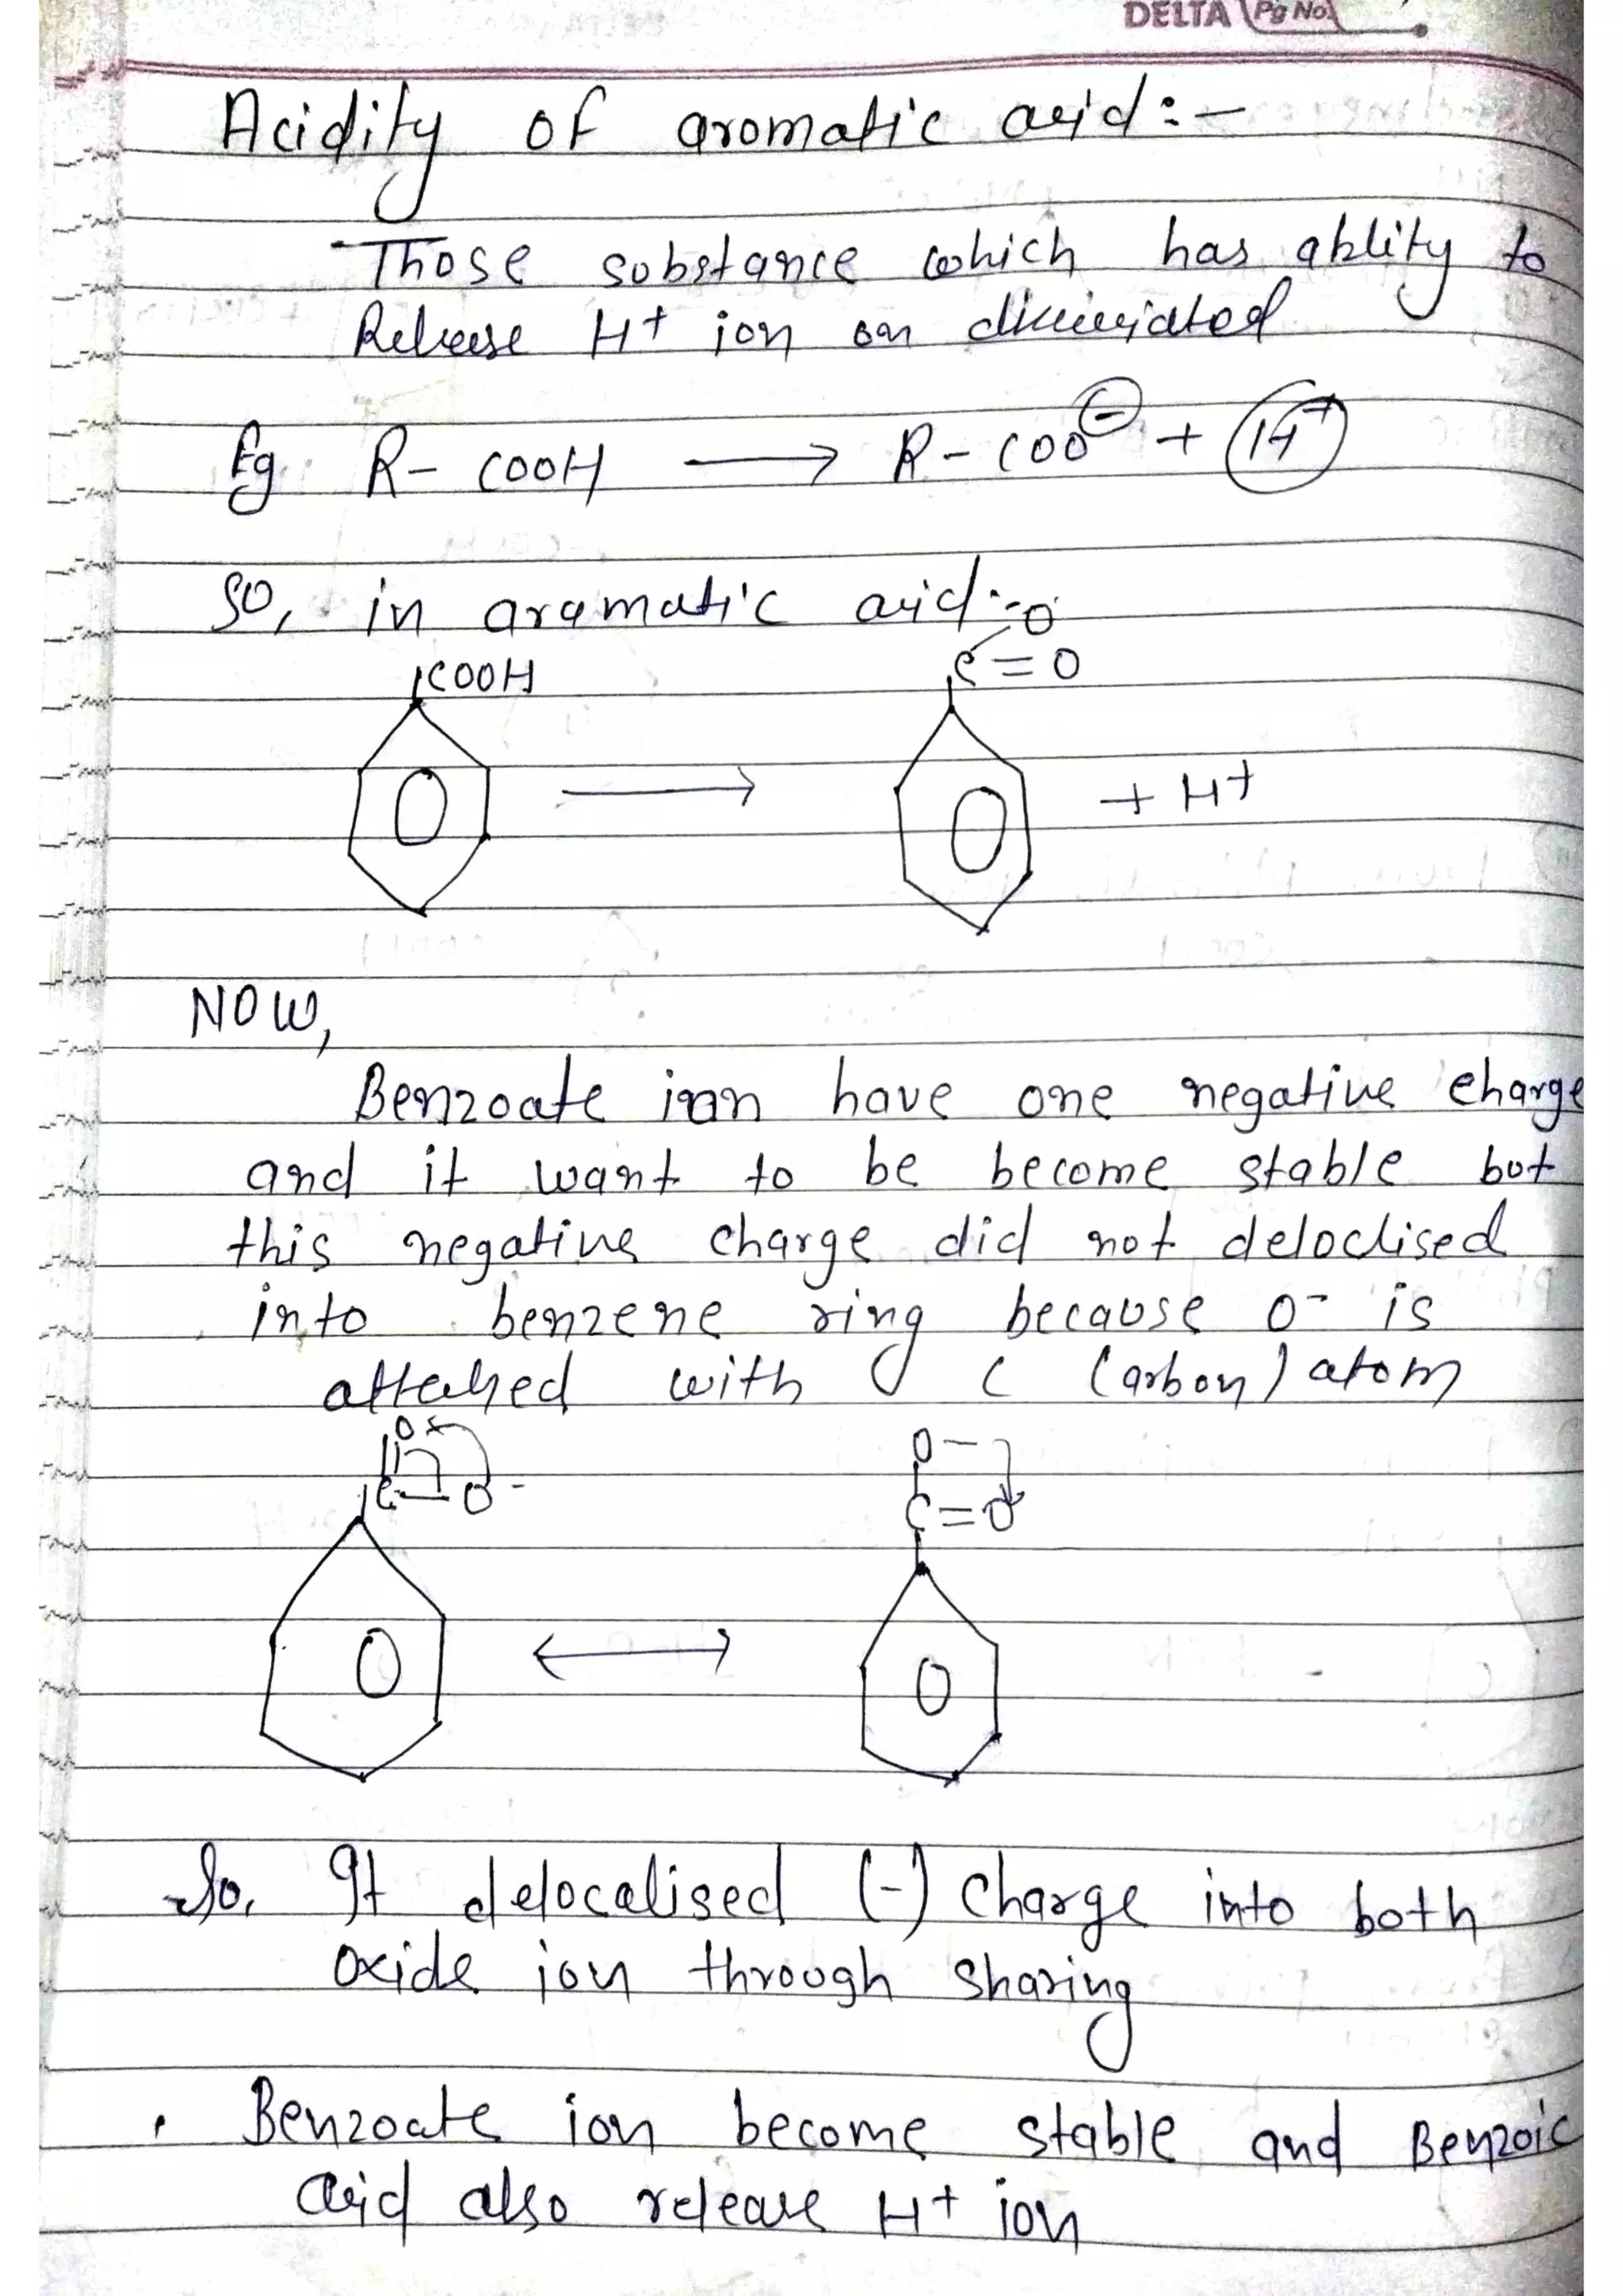 DELTA Pg No.
Acidity of aromatic acid :-
Those substance which has ablity to
Release H+ ion on
Eg R- COOH → R - COO⊖ + H+
SO, in aramatic acid :-
O
COOH C = O
→ + H+
NOW,
Benzoate ion have one negative charge
and it want to be become stable but
this negative charge did not deloclised
into benzene ring because O- is
attached with C (arbon) atom
O O-
C - O- C = O
↔
So, It delocalised (-) charge into both
oxide ion through sharing
• Benzoate ion become stable and Benzoic
acid also release H+ ion